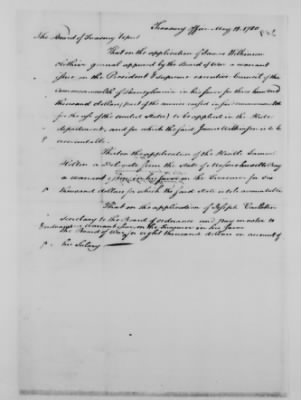 Treasury Office May 18. 1780
The Board of Treasury report
That on the application of James Wilkinson
Clothier general approved by the Board of War a warrant
issue on the President & supreme executive Council of the
commonwealth of Pennsylvania in his favor for three hundred
thousand dollars; part of the monies raised in said commonwealth
for the use of the United States; to be applied in the
department, and for which the said James Wilkinson is to be
accountable.
That on the application of the Samuel
Holten a Delegate from the State of Massachusetts Bay
a warrant issue in his favor on the Treasurer for six
thousand dollars for which the said State is to be accountable
That on the application of Joseph Carleton
Secretary to the Board of ordnance and pay master to
a warrant issue on the Treasurer in his favor
the Board of War, for eight thousand dollars on account of
his Salary